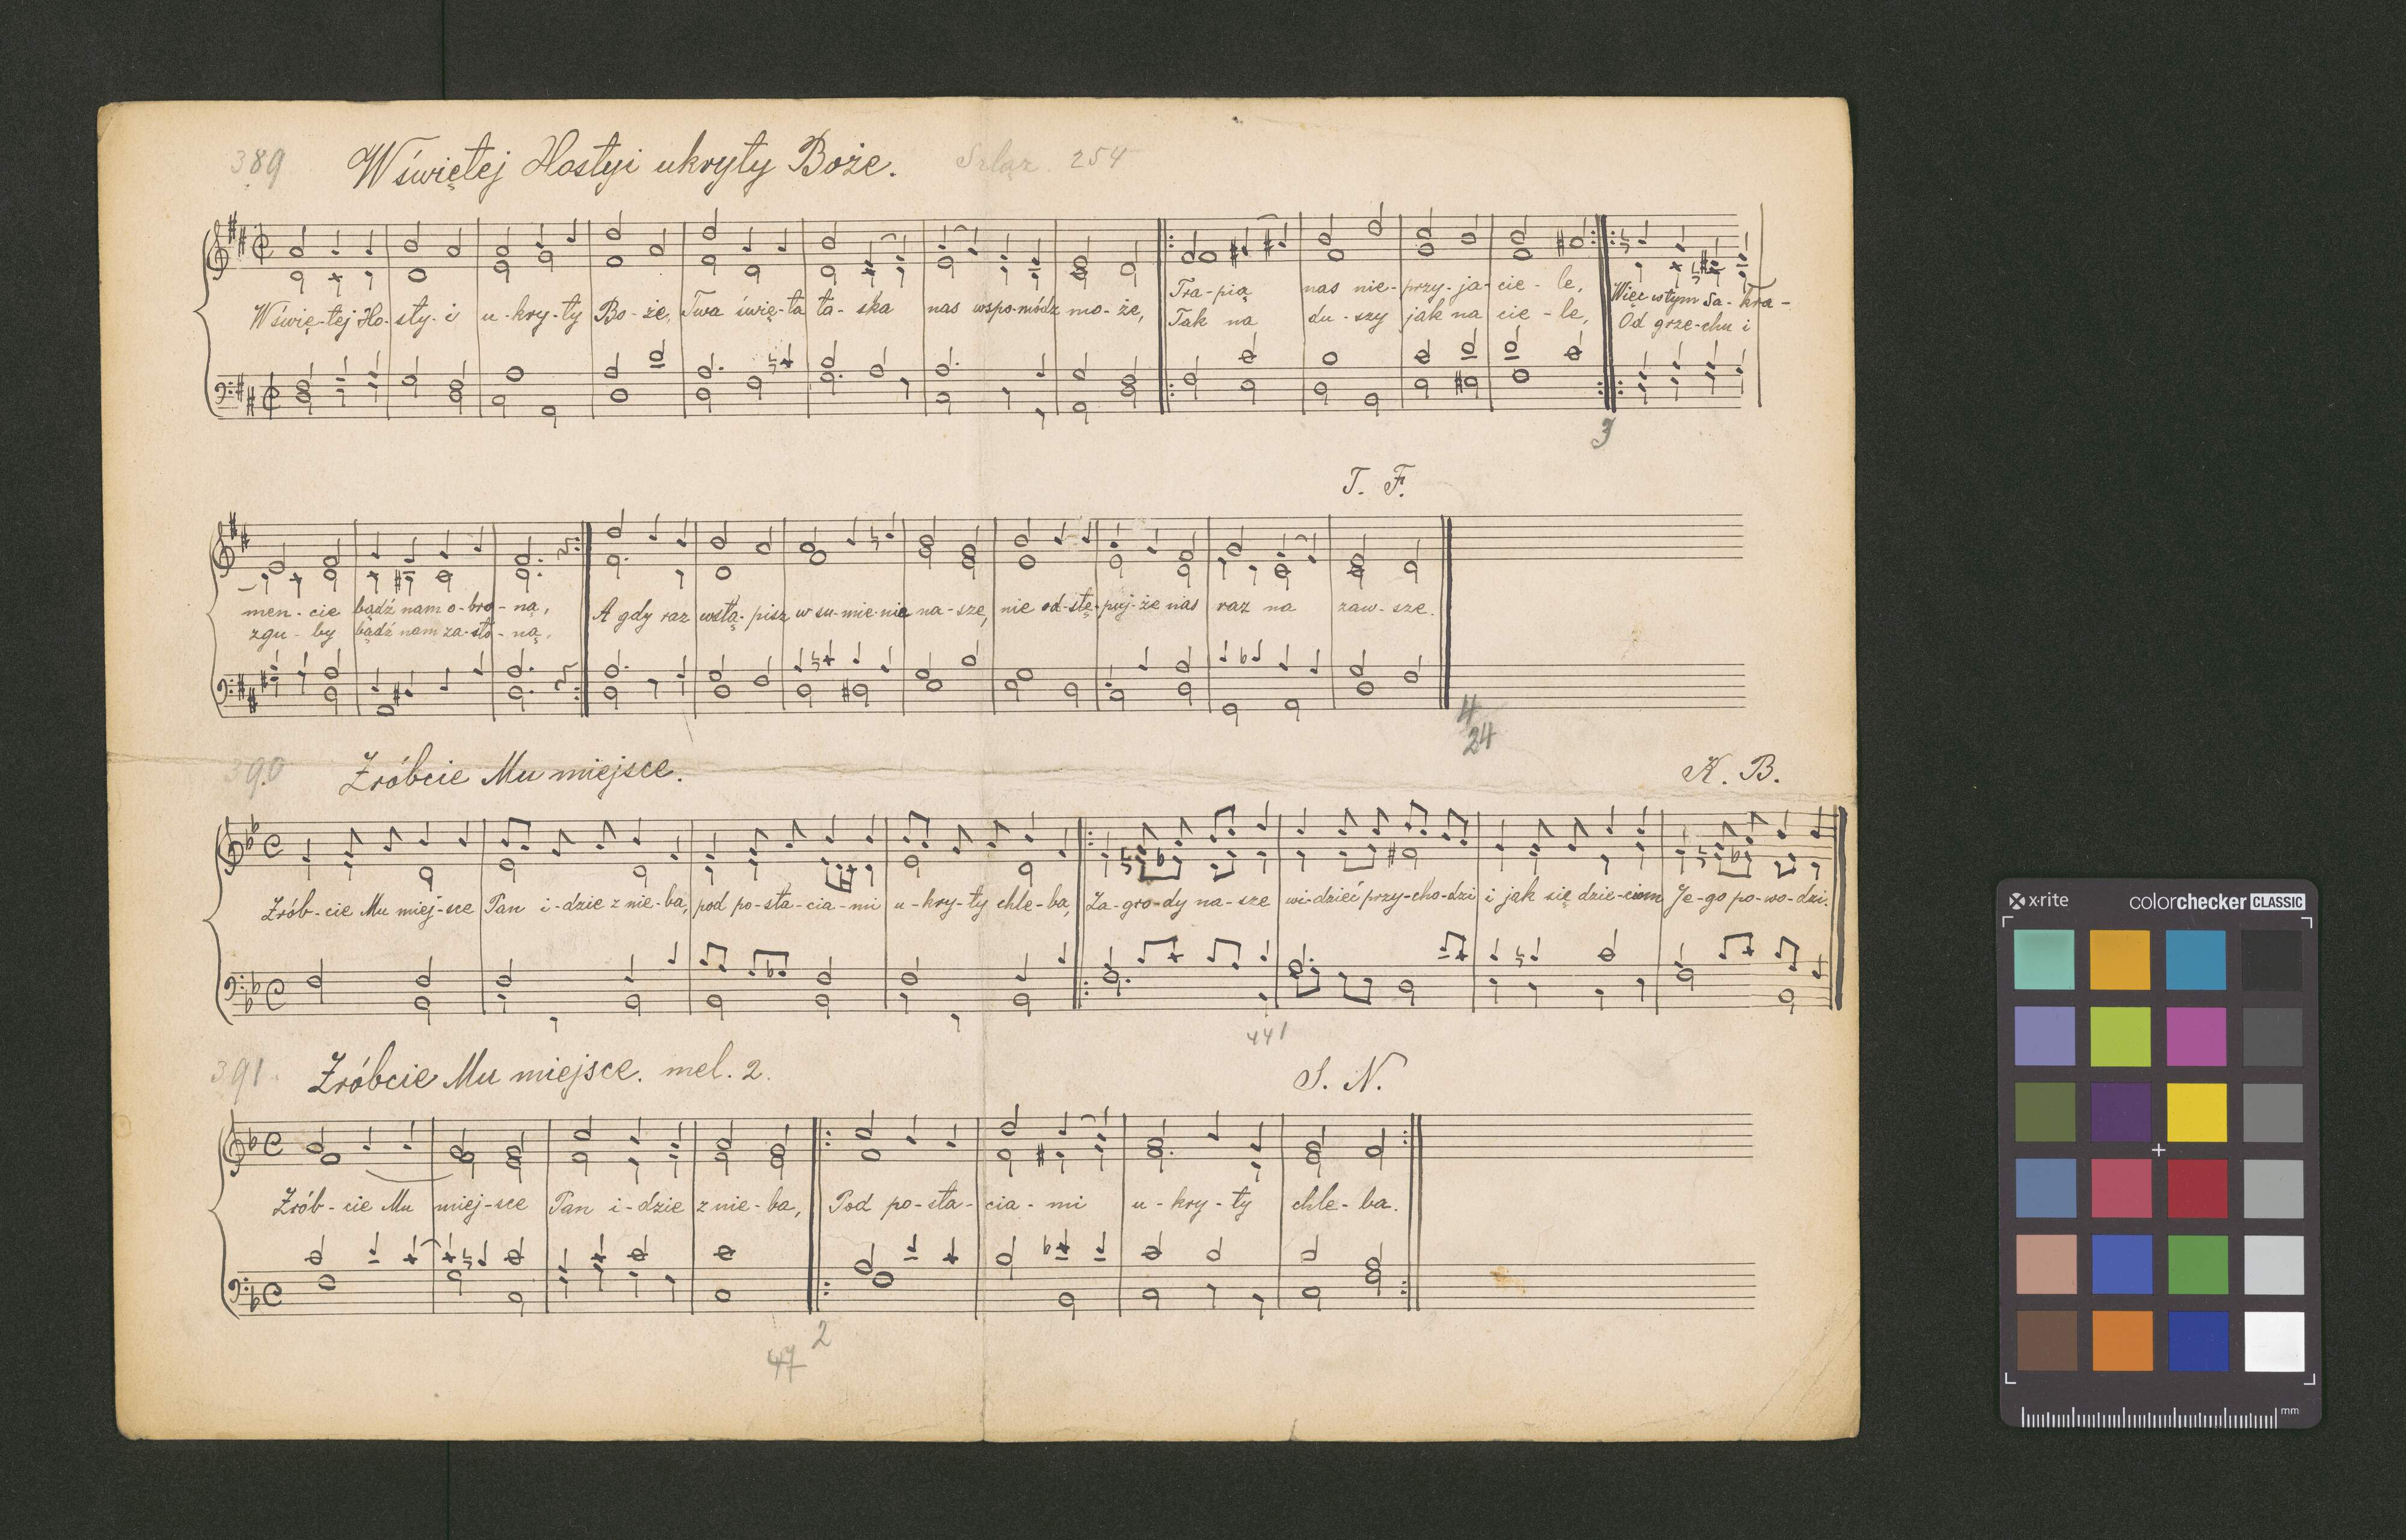 389 W świętej Hostyi ukryty Boże. Szląz. 254
W świę-tej Ho-sty-i u-kry-ty Bo-że, Twa świę-ta ła-ska nas wspo-módz mo-że, Tra-pią nas nie-przy-ja-cie-le, Więc w tym Sa-kra-
Tak na du-szy jak na cie-le, Od grze-chu i
3
T. F.
men-cie bądź nam o-bro-ną, A gdy raz wstą-pisz w su-mie-nie na-sze, nie od-stę-puj-że nas raz na zaw-sze.
zgu-by bądź nam za-sło-ną.
4
24
390 Zróbcie Mu miejsce. K. B.
Zrób-cie Mu miej-sce Pan i-dzie z nie-ba, pod po-sta-cia-mi u-kry-ty chle-ba, Za-gro-dy na-sze wi-dzieć przy-cho-dzi i jak się dzie-ciom Je-go po-wo-dzi.
441
391. Zróbcie Mu miejsce. mel. 2. S. N.
Zrób-cie Mu miej-sce Pan i-dzie z nie-ba, Pod po-sta-cia-mi u-kry-ty chle-ba.
2
47
x·rite colorchecker CLASSIC
mm